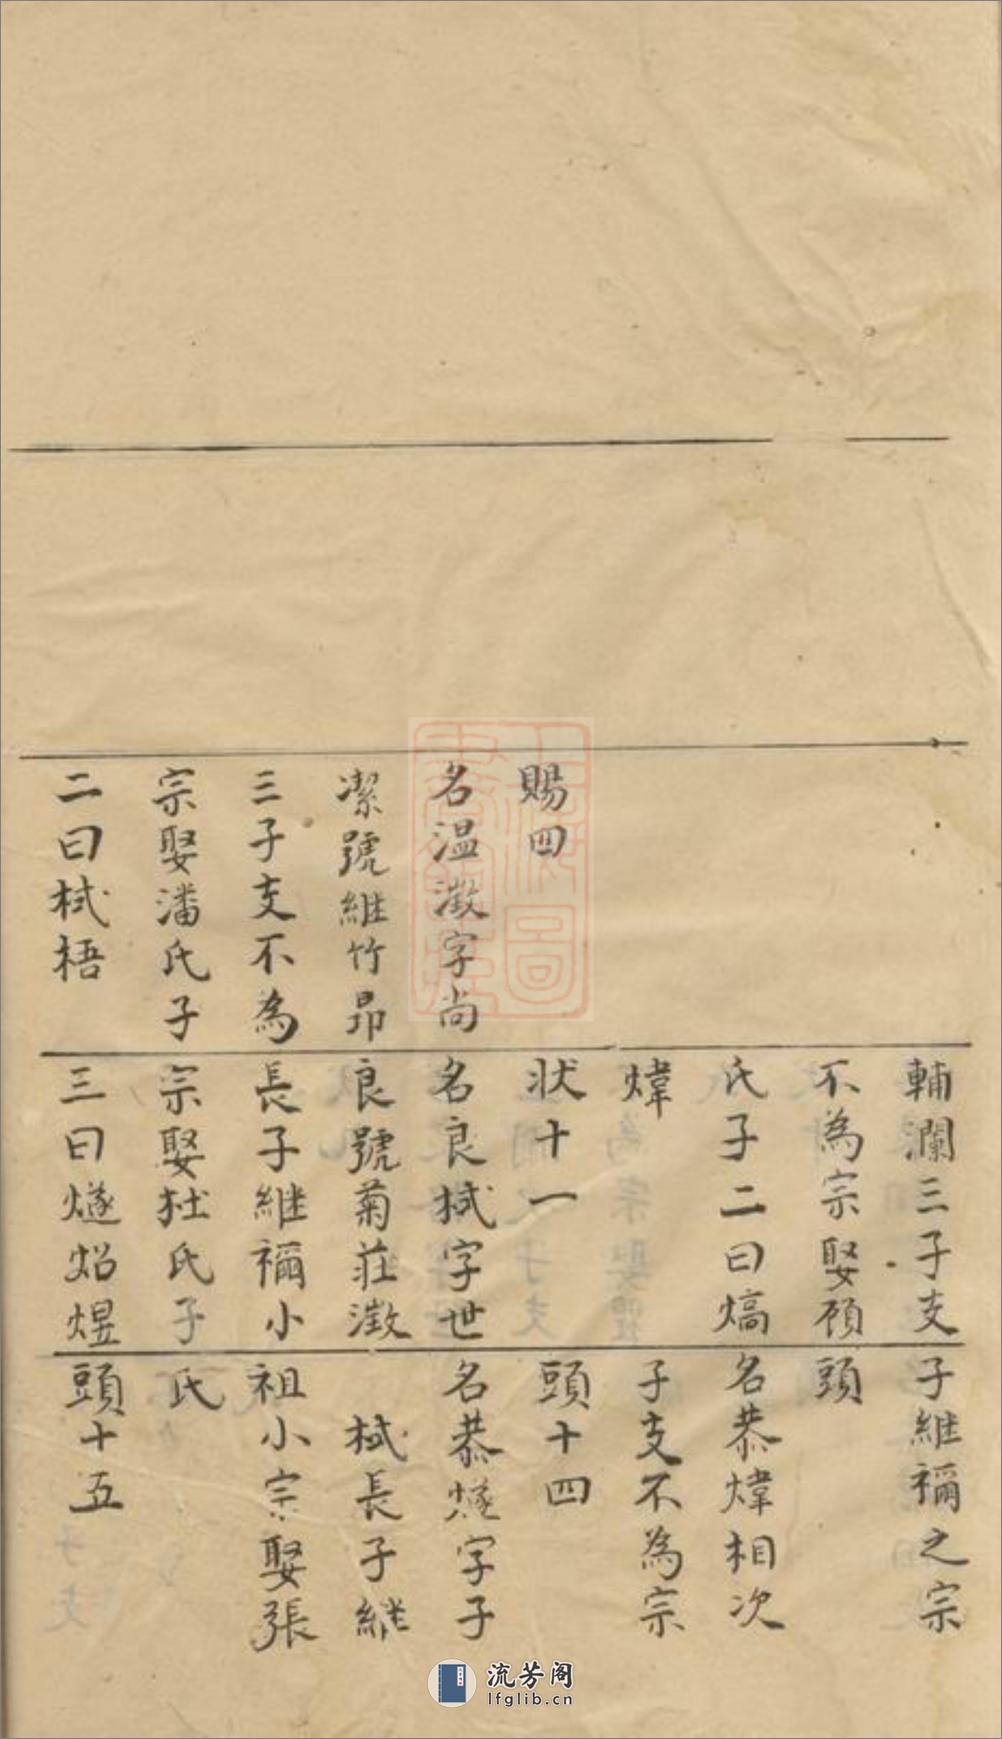 賜四
名温澂字尚
潔號維竹昂
三子支不為
宗娶潘氏子
二曰栻梧
輔瀾三子支
不為宗娶顾
氏子二曰熇
煒
状十一
名良栻字世
良號菊莊澂
長子継禰小
宗娶杜氏子
三曰燧炤煜
子継禰之宗
頭
名恭煒相次
子支不為宗
頭十四
名恭燧字子
栻長子継
祖小宗娶張
氏
頭十五
流芳阁
lfglib.cn